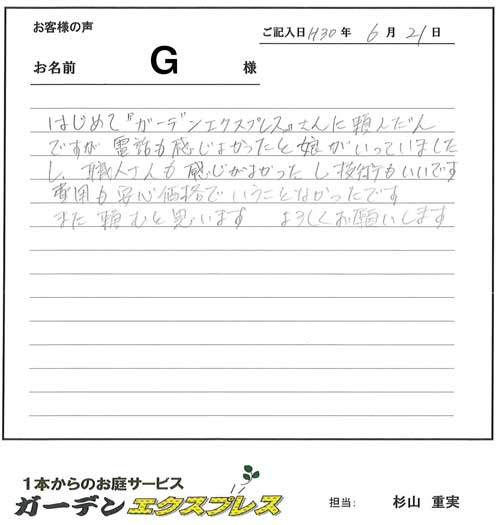 お客様の声
ご記入日 H30 年 6 月 21 日
お名前 G 様
はじめて『ガーデンエクスプレス』さんに頼んだん
ですが 電話も感じよかったと娘がいっていました
し、職人さんも感じがよかったし接待もいいです
費用も安心価格でいうことなかったです
また頼むと思います よろしくお願いします
1本からのお庭サービス
ガーデンエクスプレス
担当: 杉山 重実